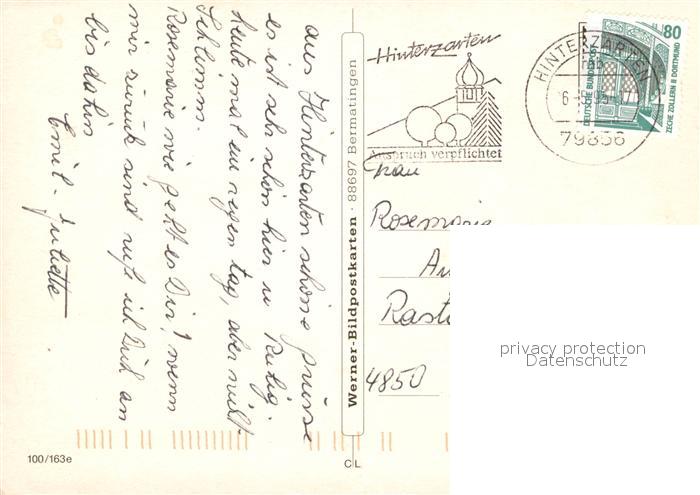 aus Hinterzarten schöne Grüsse
es ist sehr schön hier u Ruhig.
heute mal ein regen tag, aber nicht
Schlimm.
Rosemarie wie geht es Dir? wenn
wir zurück sind rufe ich Dich an
bis dahin
Emil - Juliette
Werner-Bildpostkarten · 88697 Bermatingen
Hinterzarten
Anspruch verpflichtet
HINTERZARTEN
79856
80
DEUTSCHE BUNDESPOST
ZECHE ZOLLERN II DORTMUND
Frau
Rosemarie
Rast
4850
privacy protection
Datenschutz
100/163e
CL